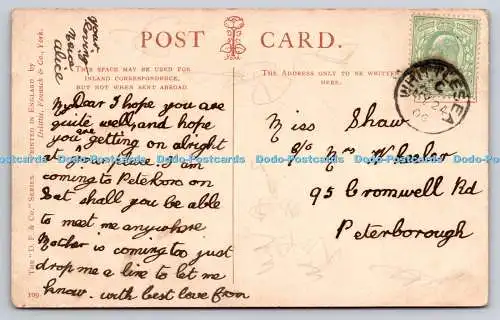 your
loving
niece
Alice
POST CARD.
THIS SPACE MAY BE USED FOR
INLAND CORRESPONDENCE,
BUT NOT WHEN SENT ABROAD.
THE ADDRESS ONLY TO BE WRITTEN
HERE.
My Dear I hope you are
quite well, and hope
you are getting on alright
at I am
coming to Peterboro on
Sat shall you be able
to meet me anywhere
Mother is coming too just
drop me a line to let me
know. with best love from
Miss Shaw
c/o Mrs Wheeler
95 Cromwell Rd
Peterborough
WHITTLESEY
C
24
06
THE "D. F. & Co." SERIES. PRINTED IN ENGLAND BY
Delittle, Fenwick & Co., York.
109
Dodo-Postcards Dodo-Postcards Dodo-Postcards Dodo-Postcards Dodo-Postcards Dodo-Postcards